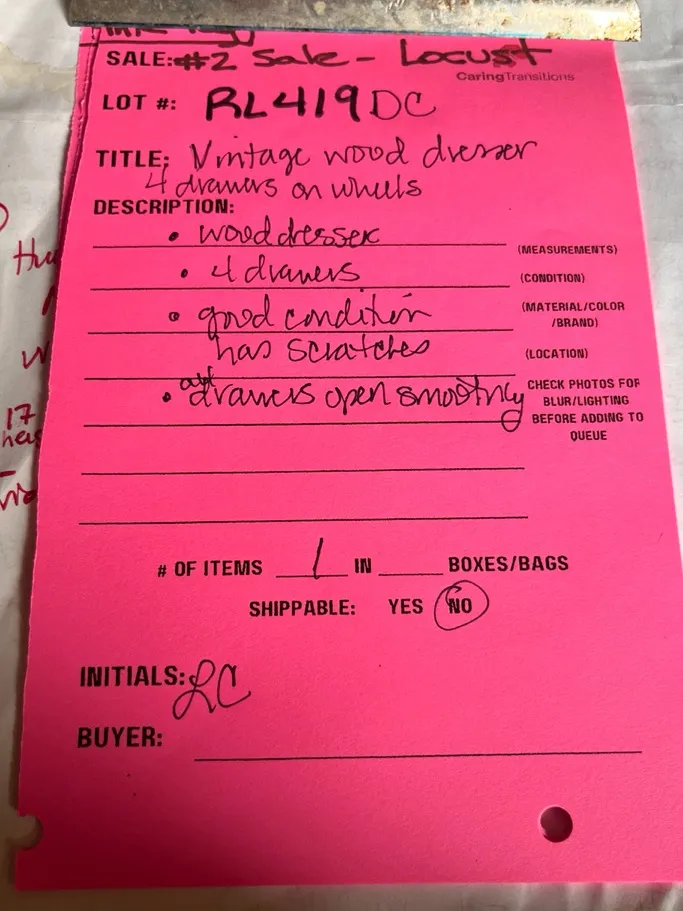 SALE: #2 Sale - Locust
CaringTransitions
LOT #: RL419DC
TITLE: Vintage wood dresser
4 drawers on wheels
DESCRIPTION:
• wood dresser
(MEASUREMENTS)
• 4 drawers
(CONDITION)
• good condition
(MATERIAL/COLOR
/BRAND)
has scratches
(LOCATION)
• all drawers open smoothly
CHECK PHOTOS FOR
BLUR/LIGHTING
BEFORE ADDING TO
QUEUE
# OF ITEMS 1 IN ____ BOXES/BAGS
SHIPPABLE: YES NO
INITIALS: LC
BUYER:
17